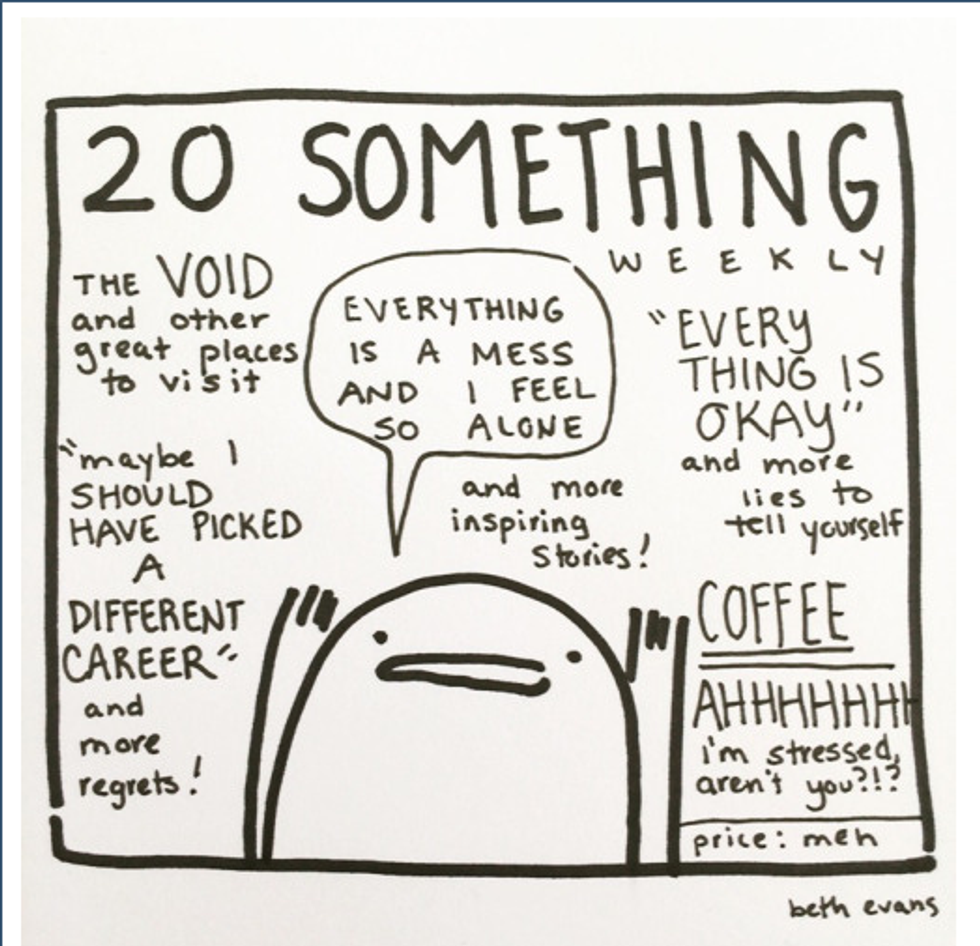 20 SOMETHING
WEEKLY
THE VOID
and other
great places
to visit
"maybe I
SHOULD
HAVE PICKED
A
DIFFERENT
CAREER"
and
more
regrets!
EVERYTHING
IS A MESS
AND I FEEL
SO ALONE
and more
inspiring
stories!
"EVERY
THING IS
OKAY"
and more
lies to
tell yourself
COFFEE
AHHHHHHH
i'm stressed,
aren't you?!?
price: meh
beth evans